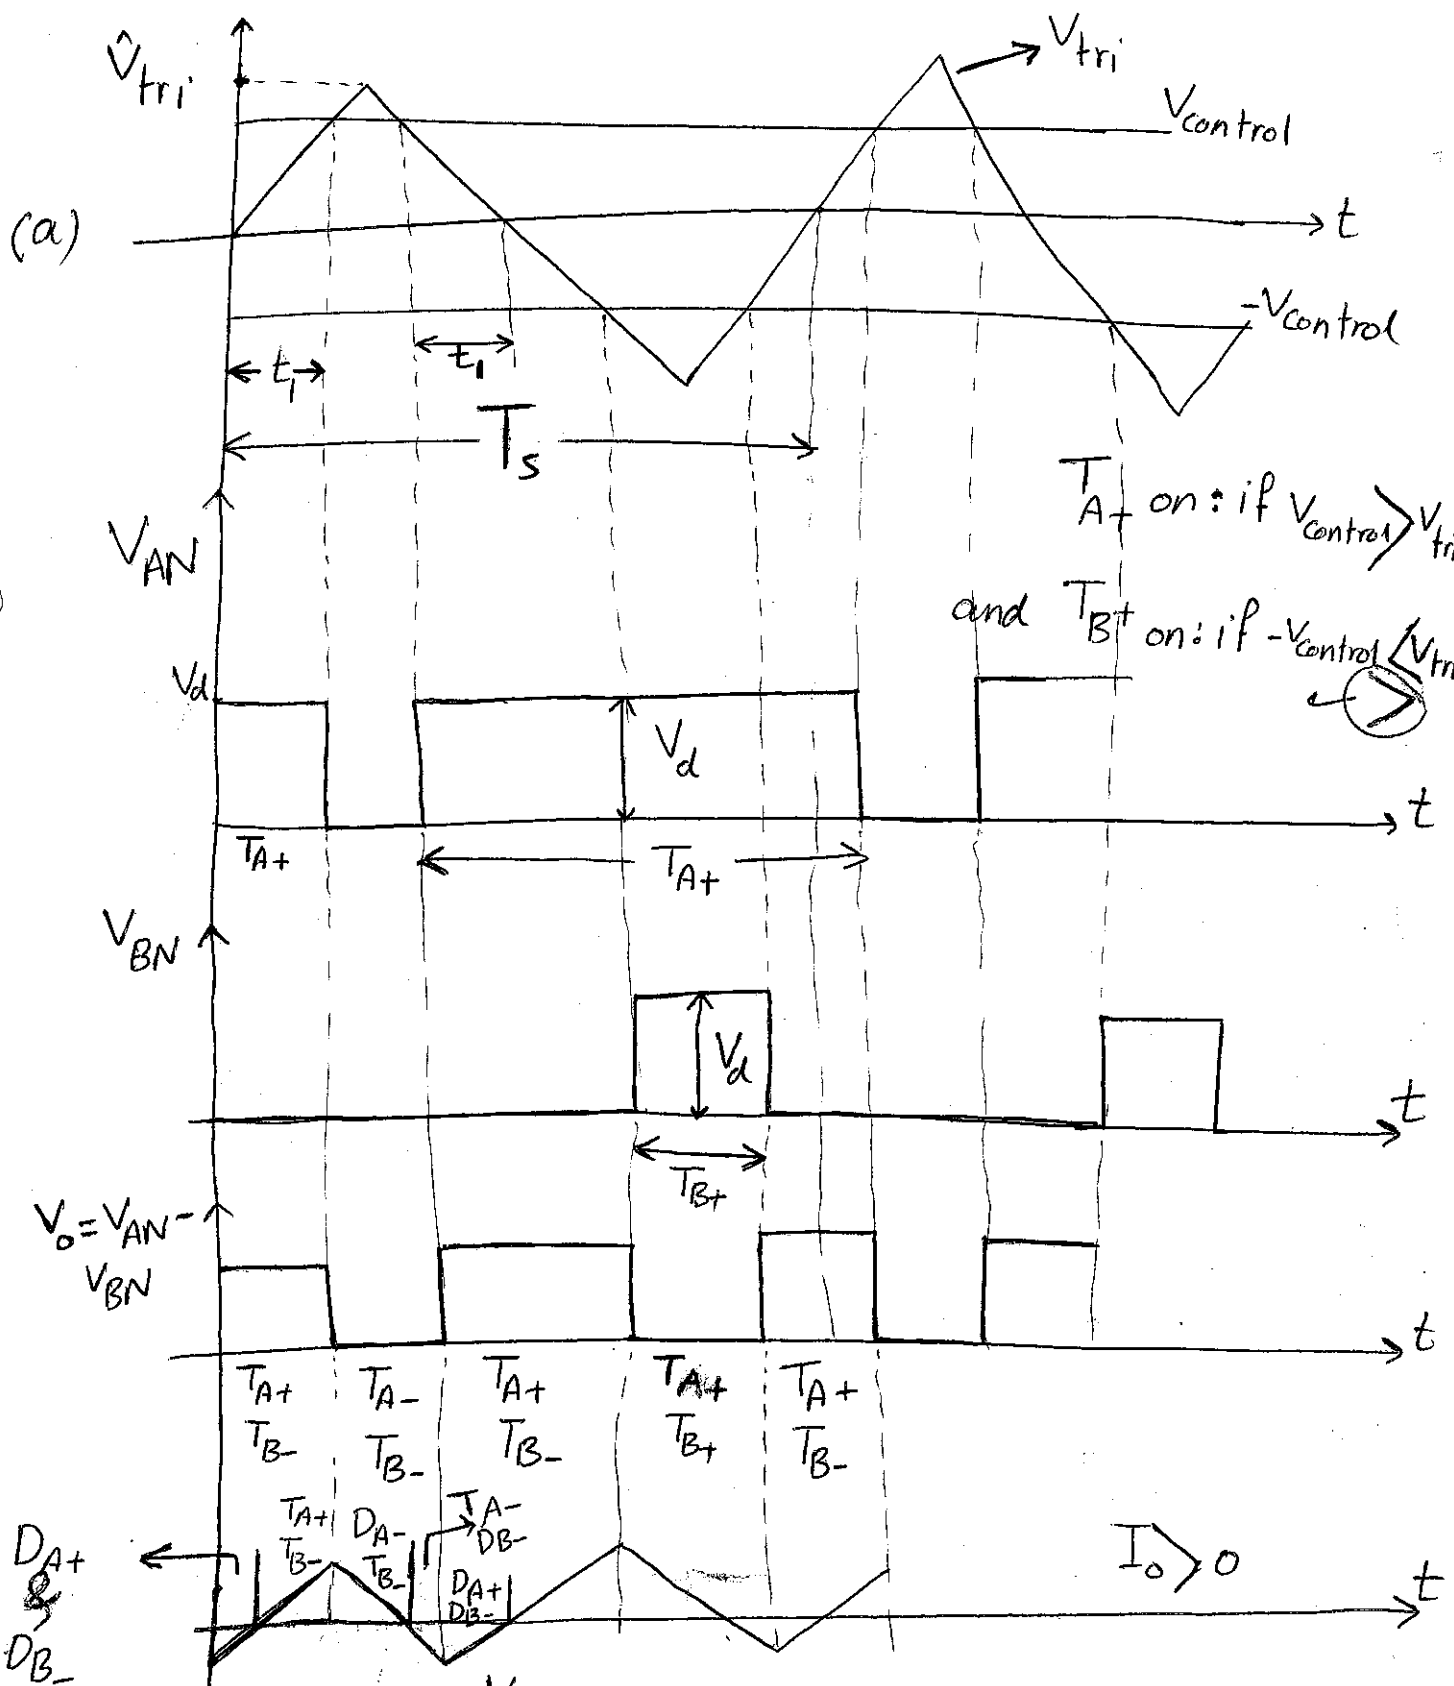 V̂tri
Vtri
Vcontrol
(a)
t
-Vcontrol
t1
t1
Ts
TA+ on: if Vcontrol > Vtri
VAN
and TB+ on: if -Vcontrol < Vtri
>
Vd
Vd
t
TA+
TA+
VBN
Vd
t
TB+
Vo = VAN -
VBN
t
TA+ TA- TA+ TA+ TA+
TB- TB- TB- TB+ TB-
TA+ DA- TA-
TB- TB- DB-
DA+
DB-
DA+
&
DB-
Io > 0
t